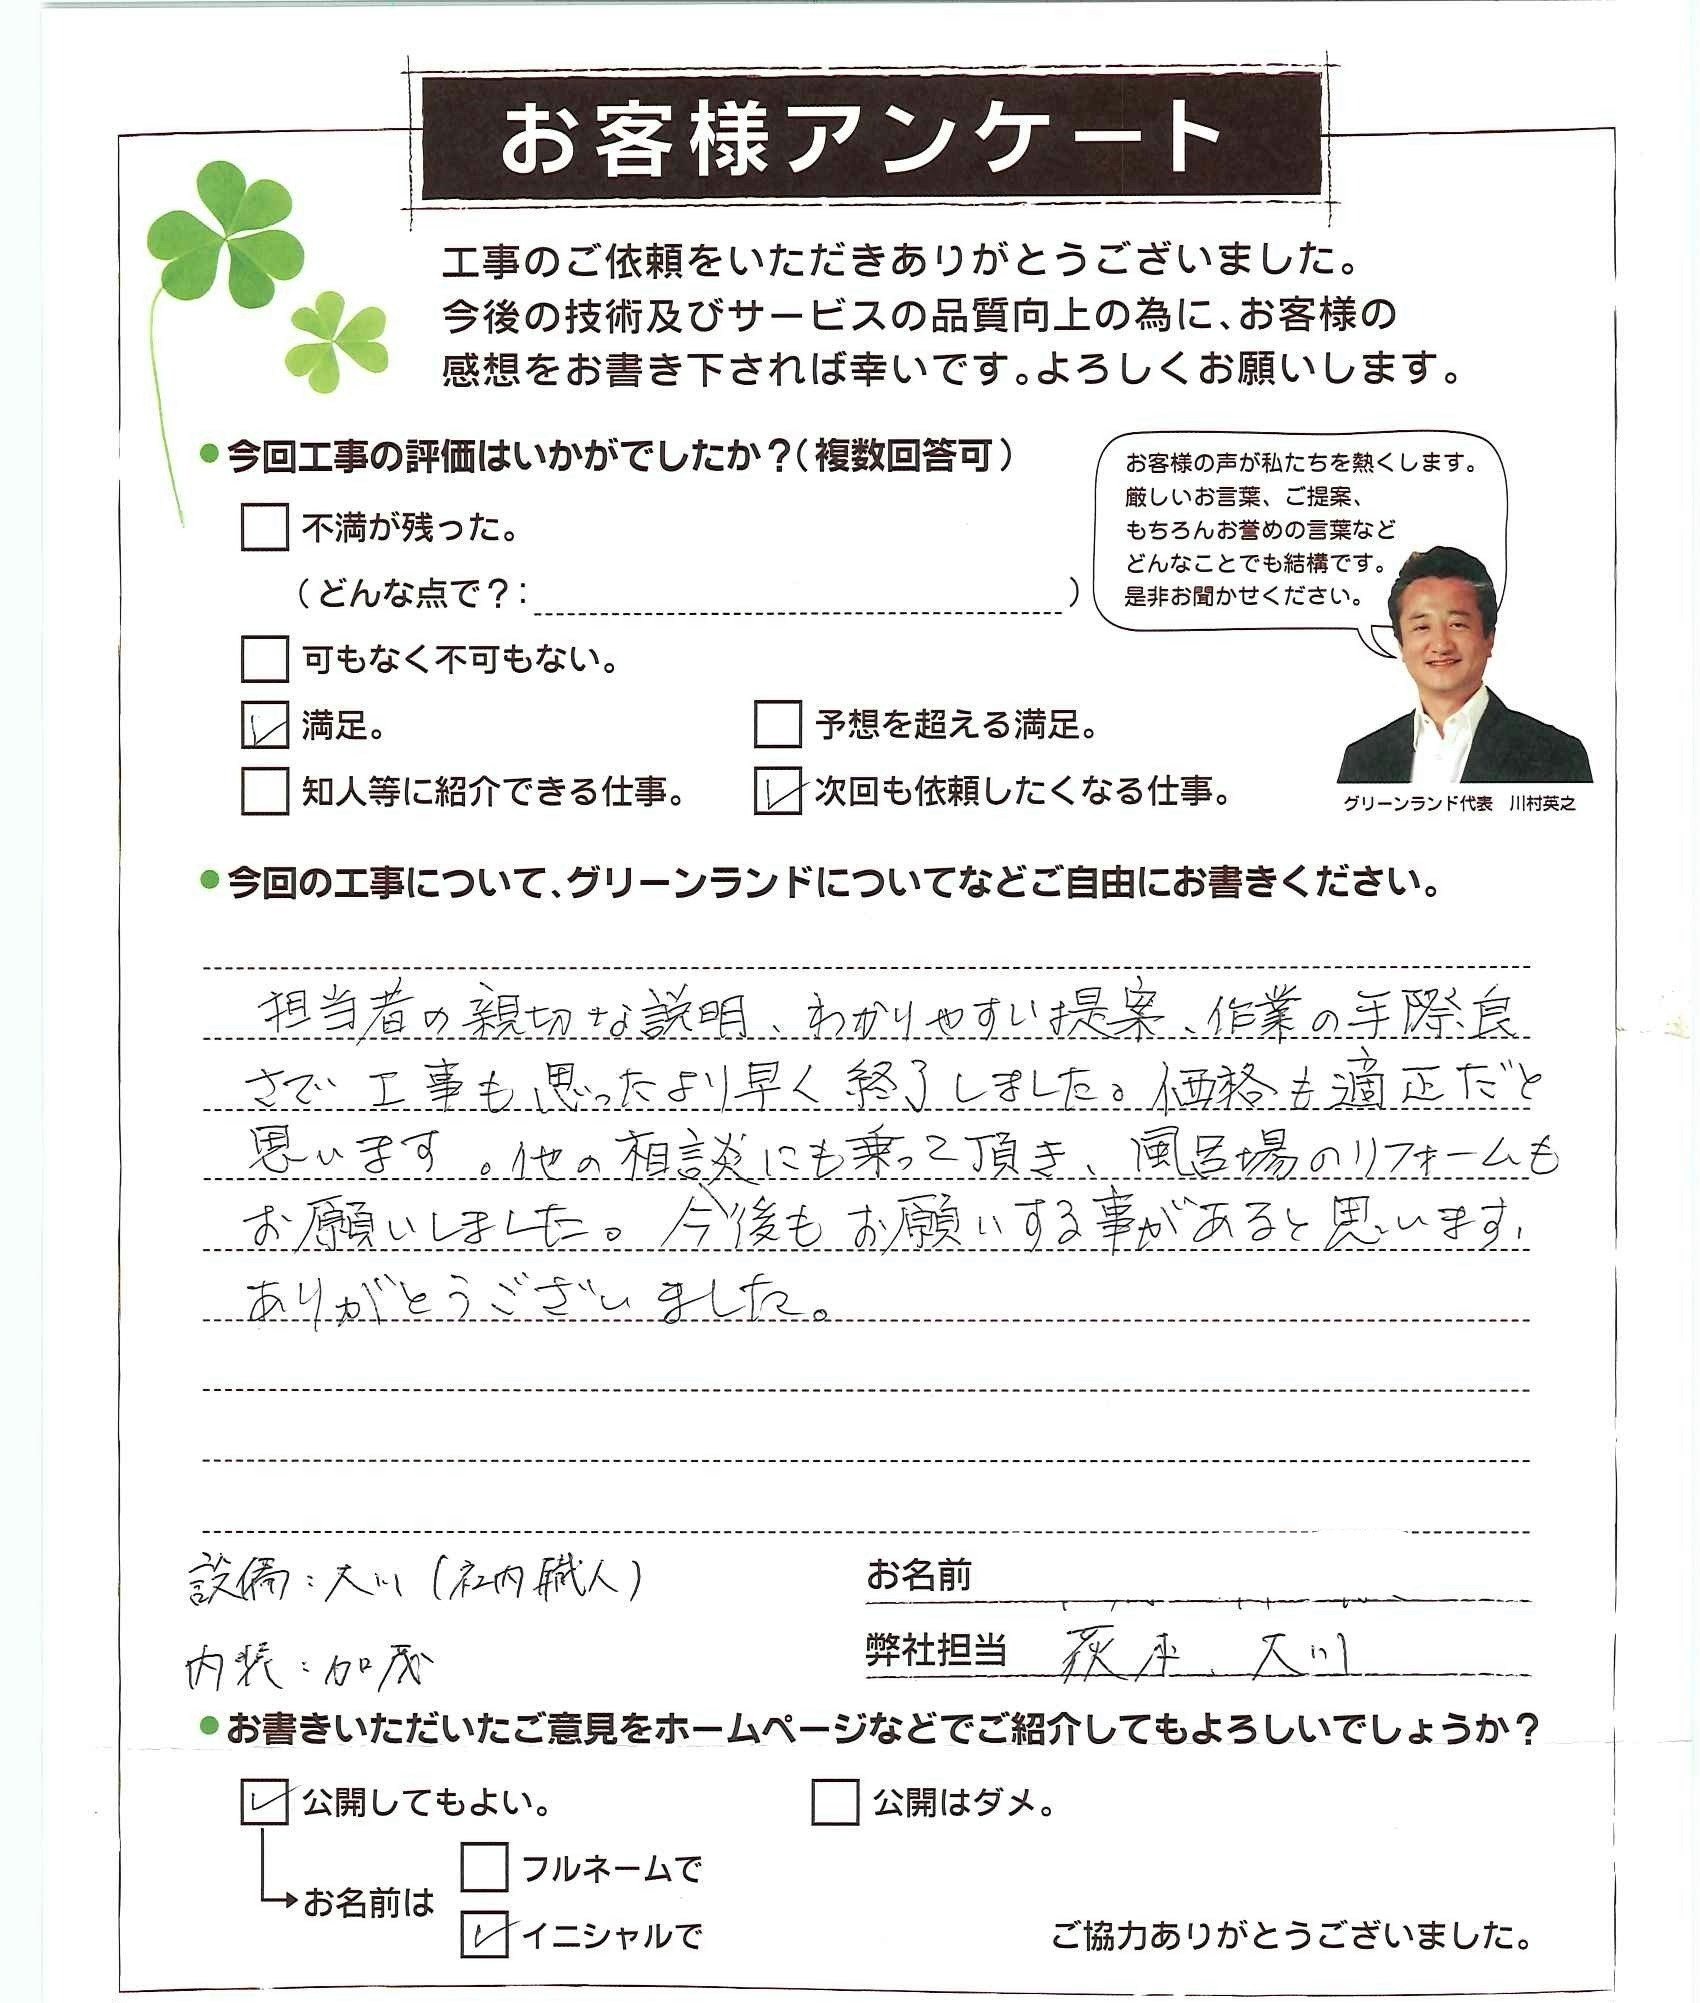 お客様アンケート
工事のご依頼をいただきありがとうございました。
今後の技術及びサービスの品質向上の為に、お客様の
感想をお書き下されば幸いです。よろしくお願いします。
●今回工事の評価はいかがでしたか？（複数回答可）
不満が残った。
（どんな点で？： ）
可もなく不可もない。
満足。
予想を超える満足。
知人等に紹介できる仕事。
次回も依頼したくなる仕事。
お客様の声が私たちを熱くします。
厳しいお言葉、ご提案、
もちろんお誉めの言葉など
どんなことでも結構です。
是非お聞かせください。
グリーンランド代表　川村英之
●今回の工事について、グリーンランドについてなどご自由にお書きください。
担当者の親切な説明、わかりやすい提案、作業の手際良
さで工事も思ったより早く終了しました。価格も適正だと
思います。他の相談にも乗って頂き、風呂場のリフォームも
お願いしました。今後もお願いする事があると思います。
ありがとうございました。
設備：大川（社内職人）
内装：加茂
お名前
弊社担当 大川
●お書きいただいたご意見をホームページなどでご紹介してもよろしいでしょうか？
公開してもよい。
公開はダメ。
お名前は
フルネームで
イニシャルで
ご協力ありがとうございました。